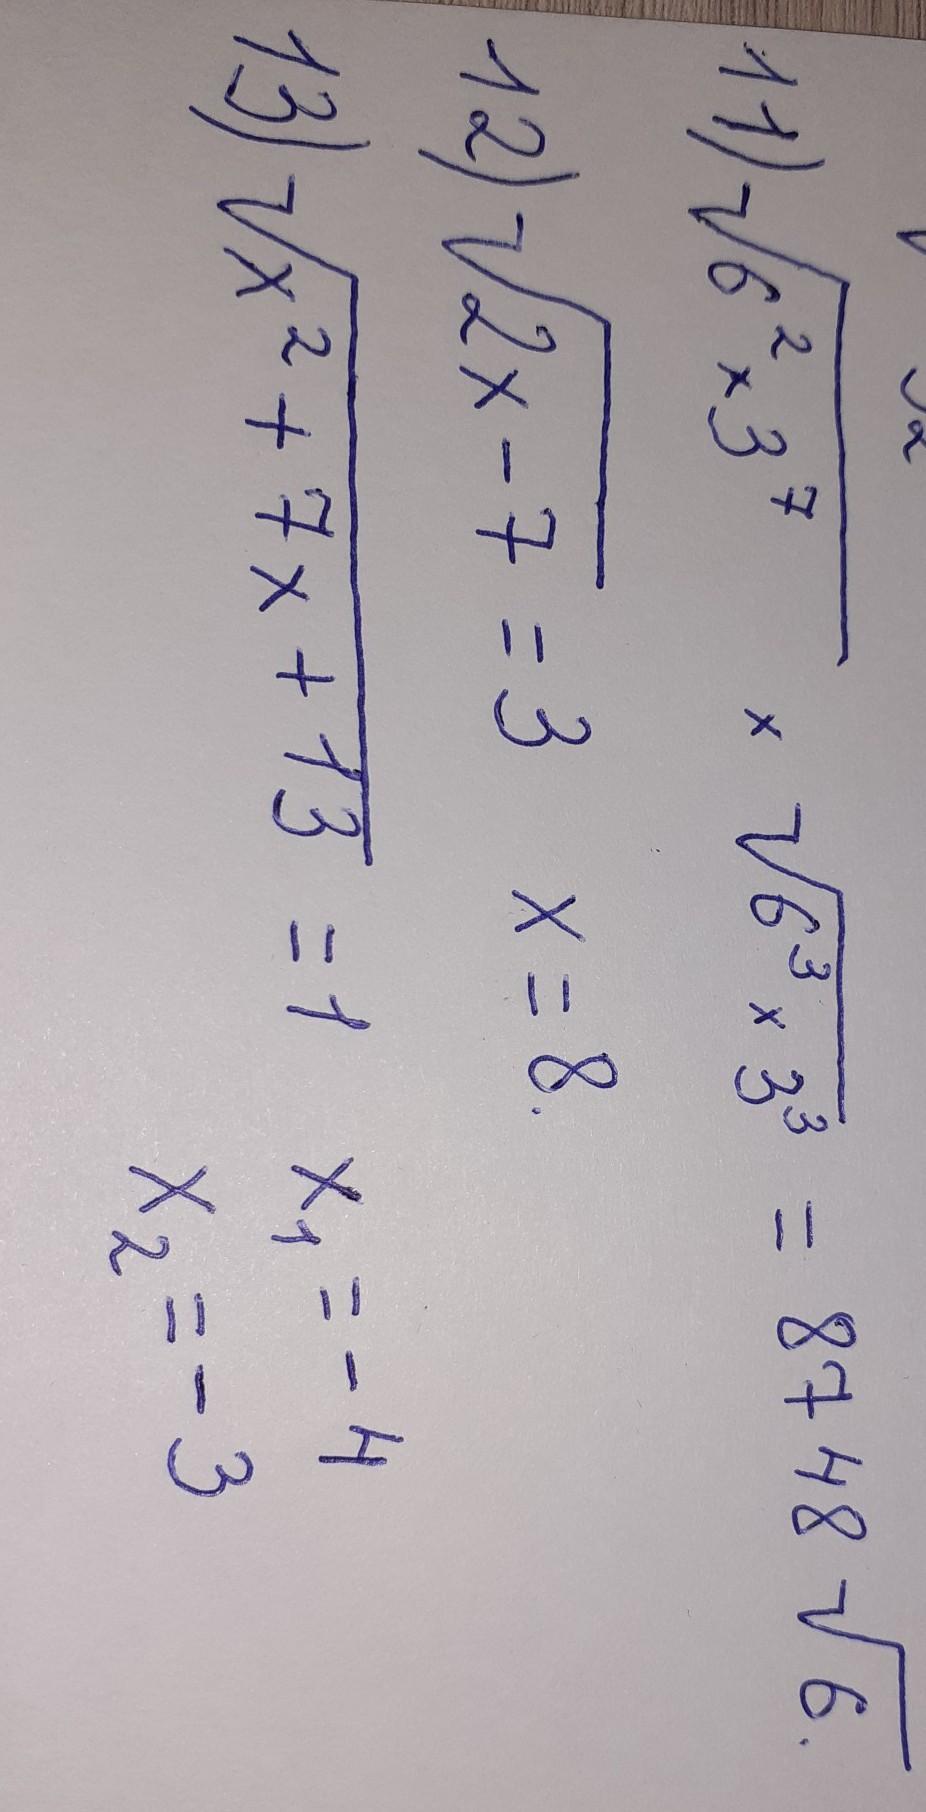 11) √6² × 3⁷ × √6³ × 3³ = 8748 √6.
12) √2x - 7 = 3 x = 8.
13) √x² + 7x + 13 = 1 x₁ = -4
x₂ = -3